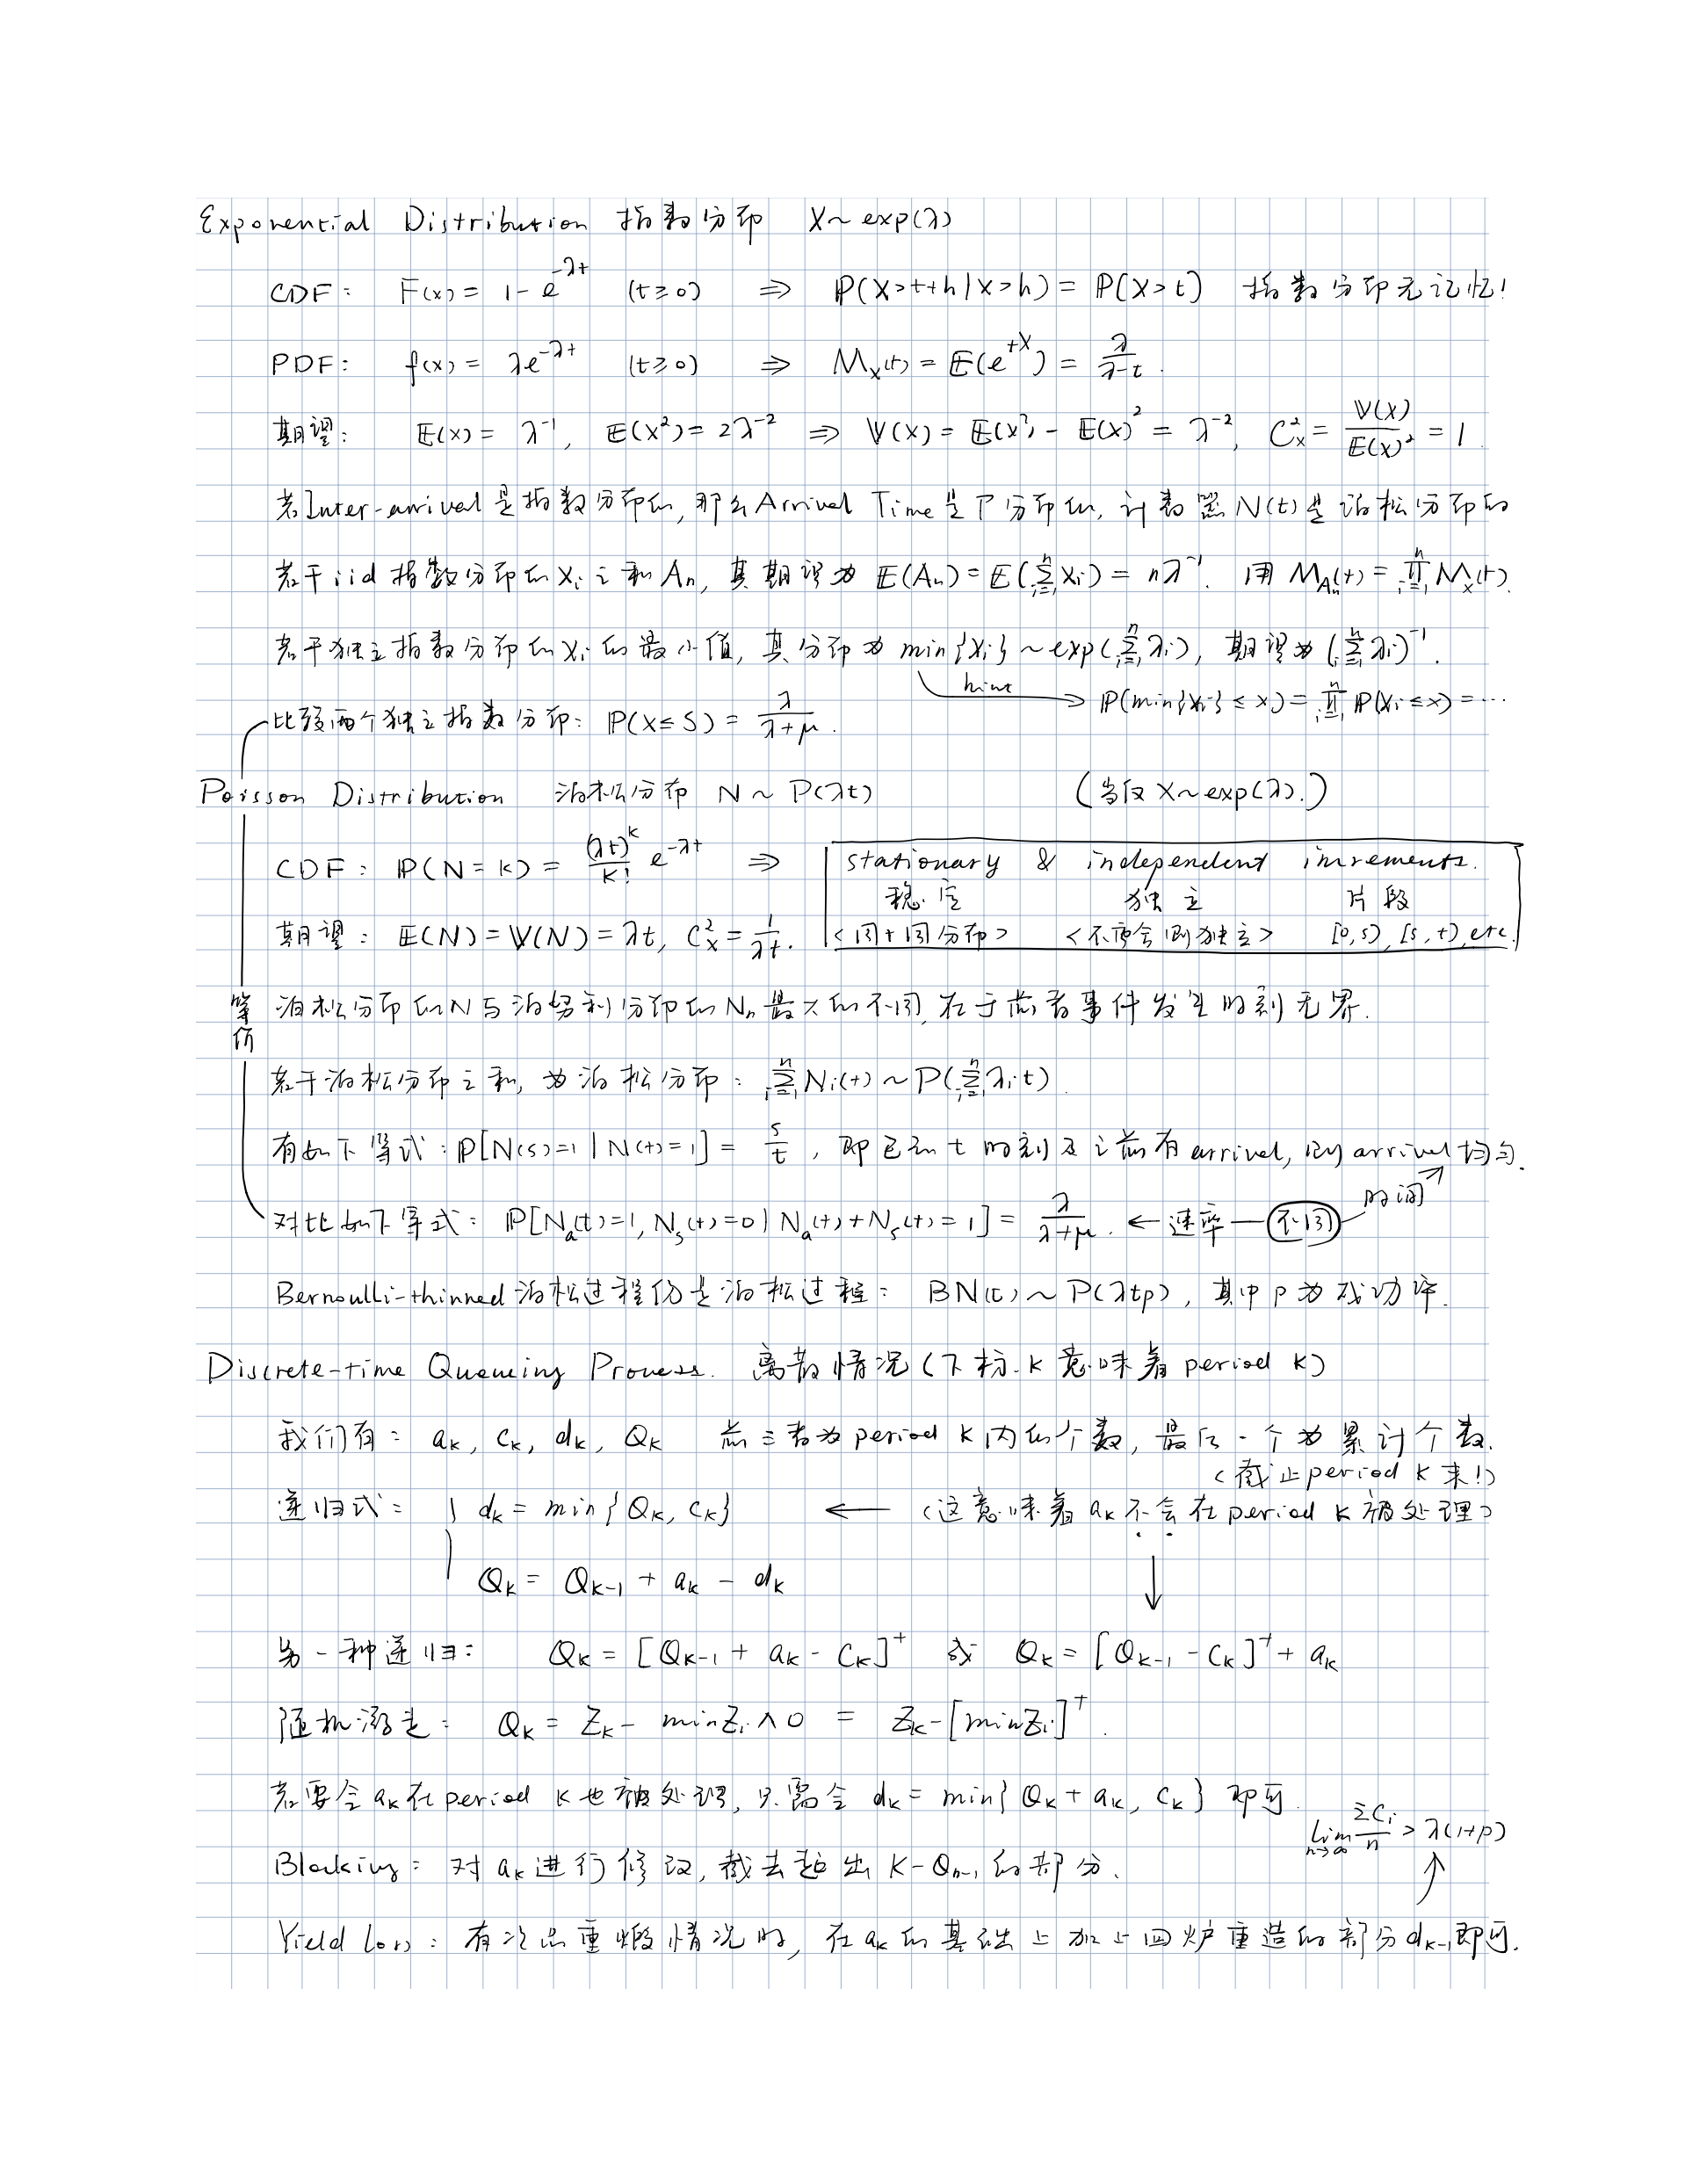 Exponential Distribution 指数分布 X~exp(λ)
CDF: F(x) = 1 - e^{-λt} (t≥0) ⇒ ℙ(X>t+h|X>h) = ℙ(X>t) 指数分布无记忆!
PDF: f(x) = λe^{-λt} (t≥0) ⇒ M_X(t) = 𝔼(e^{tX}) = λ/(λ-t).
期望: 𝔼(X) = λ^{-1}, 𝔼(X²) = 2λ^{-2} ⇒ 𝕍(X) = 𝔼(X²) - 𝔼(X)² = λ^{-2}, C_X² = 𝕍(X)/𝔼(X)² = 1.
若Inter-arrival是指数分布的,那么Arrival Time是Γ分布的,计数器N(t)是泊松分布的
若干iid指数分布的Xi之和An,其期望为 𝔼(An) = 𝔼(∑_{i=1}^n Xi) = nλ^{-1}. 用 M_{An}(t) = ∏_{i=1}^n M_X(t).
若干独立指数分布的Xi的最小值,其分布为 min{Xi} ~ exp(∑_{i=1}^n λi), 期望为 (∑_{i=1}^n λi)^{-1}.
hint → ℙ(min{Xi} ≤ x) = ∏_{i=1}^n ℙ(Xi ≤ x) = ···
比较两个独立指数分布: ℙ(X≤S) = λ/(λ+μ).
Poisson Distribution 泊松分布 N ~ P(λt) (当仅 X~exp(λ).)
CDF: ℙ(N=k) = (λt)^k/k! e^{-λt} ⇒ stationary & independent increments.
稳定 独立 片段
期望: 𝔼(N) = 𝕍(N) = λt, C_X² = 1/λt. <同t同分布> <不重合则独立> [0,s), [s,t), etc.
等价
泊松分布的N与泊努利分布的Nn最大的不同,在于前者事件发生时刻无界.
若干泊松分布之和,为泊松分布: ∑_{i=1}^n Ni(t) ~ P(∑_{i=1}^n λi t)
有如下等式: ℙ[N(s)=1 | N(t)=1] = s/t, 即已知t时刻及之前有arrival, 则arrival均匀.
对比如下等式: ℙ[Na(t)=1, Ns(t)=0 | Na(t)+Ns(t)=1] = λ/(λ+μ). ← 速率 — 不同 — 时间
Bernoulli-thinned泊松过程仍是泊松过程: BN(t) ~ P(λtp), 其中p为成功率.
Discrete-time Queueing Process. 离散情况(下标k意味着period k)
我们有: ak, ck, dk, Qk 前三者为period k内的个数, 最后一个为累计个数.
(截止period k末!)
递归式: dk = min{Qk, ck} ← (这意味着ak不会在period k被处理)
Qk = Qk-1 + ak - dk
另一种递归: Qk = [Qk-1 + ak - ck]^+ 或 Qk = [Qk-1 - ck]^+ + ak
随机游走: Qk = Zk - minZi ∧ 0 = Zk - [minZi]^+.
若要令ak在period k也被处理, 只需令 dk = min{Qk + ak, ck} 即可.
lim_{n→∞} ∑Ci/n > λ(1+p)
Blocking: 对ak进行修改, 截去超出 K-Qn-1 的部分.
Yield loss: 有次品重煅情况时, 在ak的基础上加上回炉重造的部分dk-1即可.